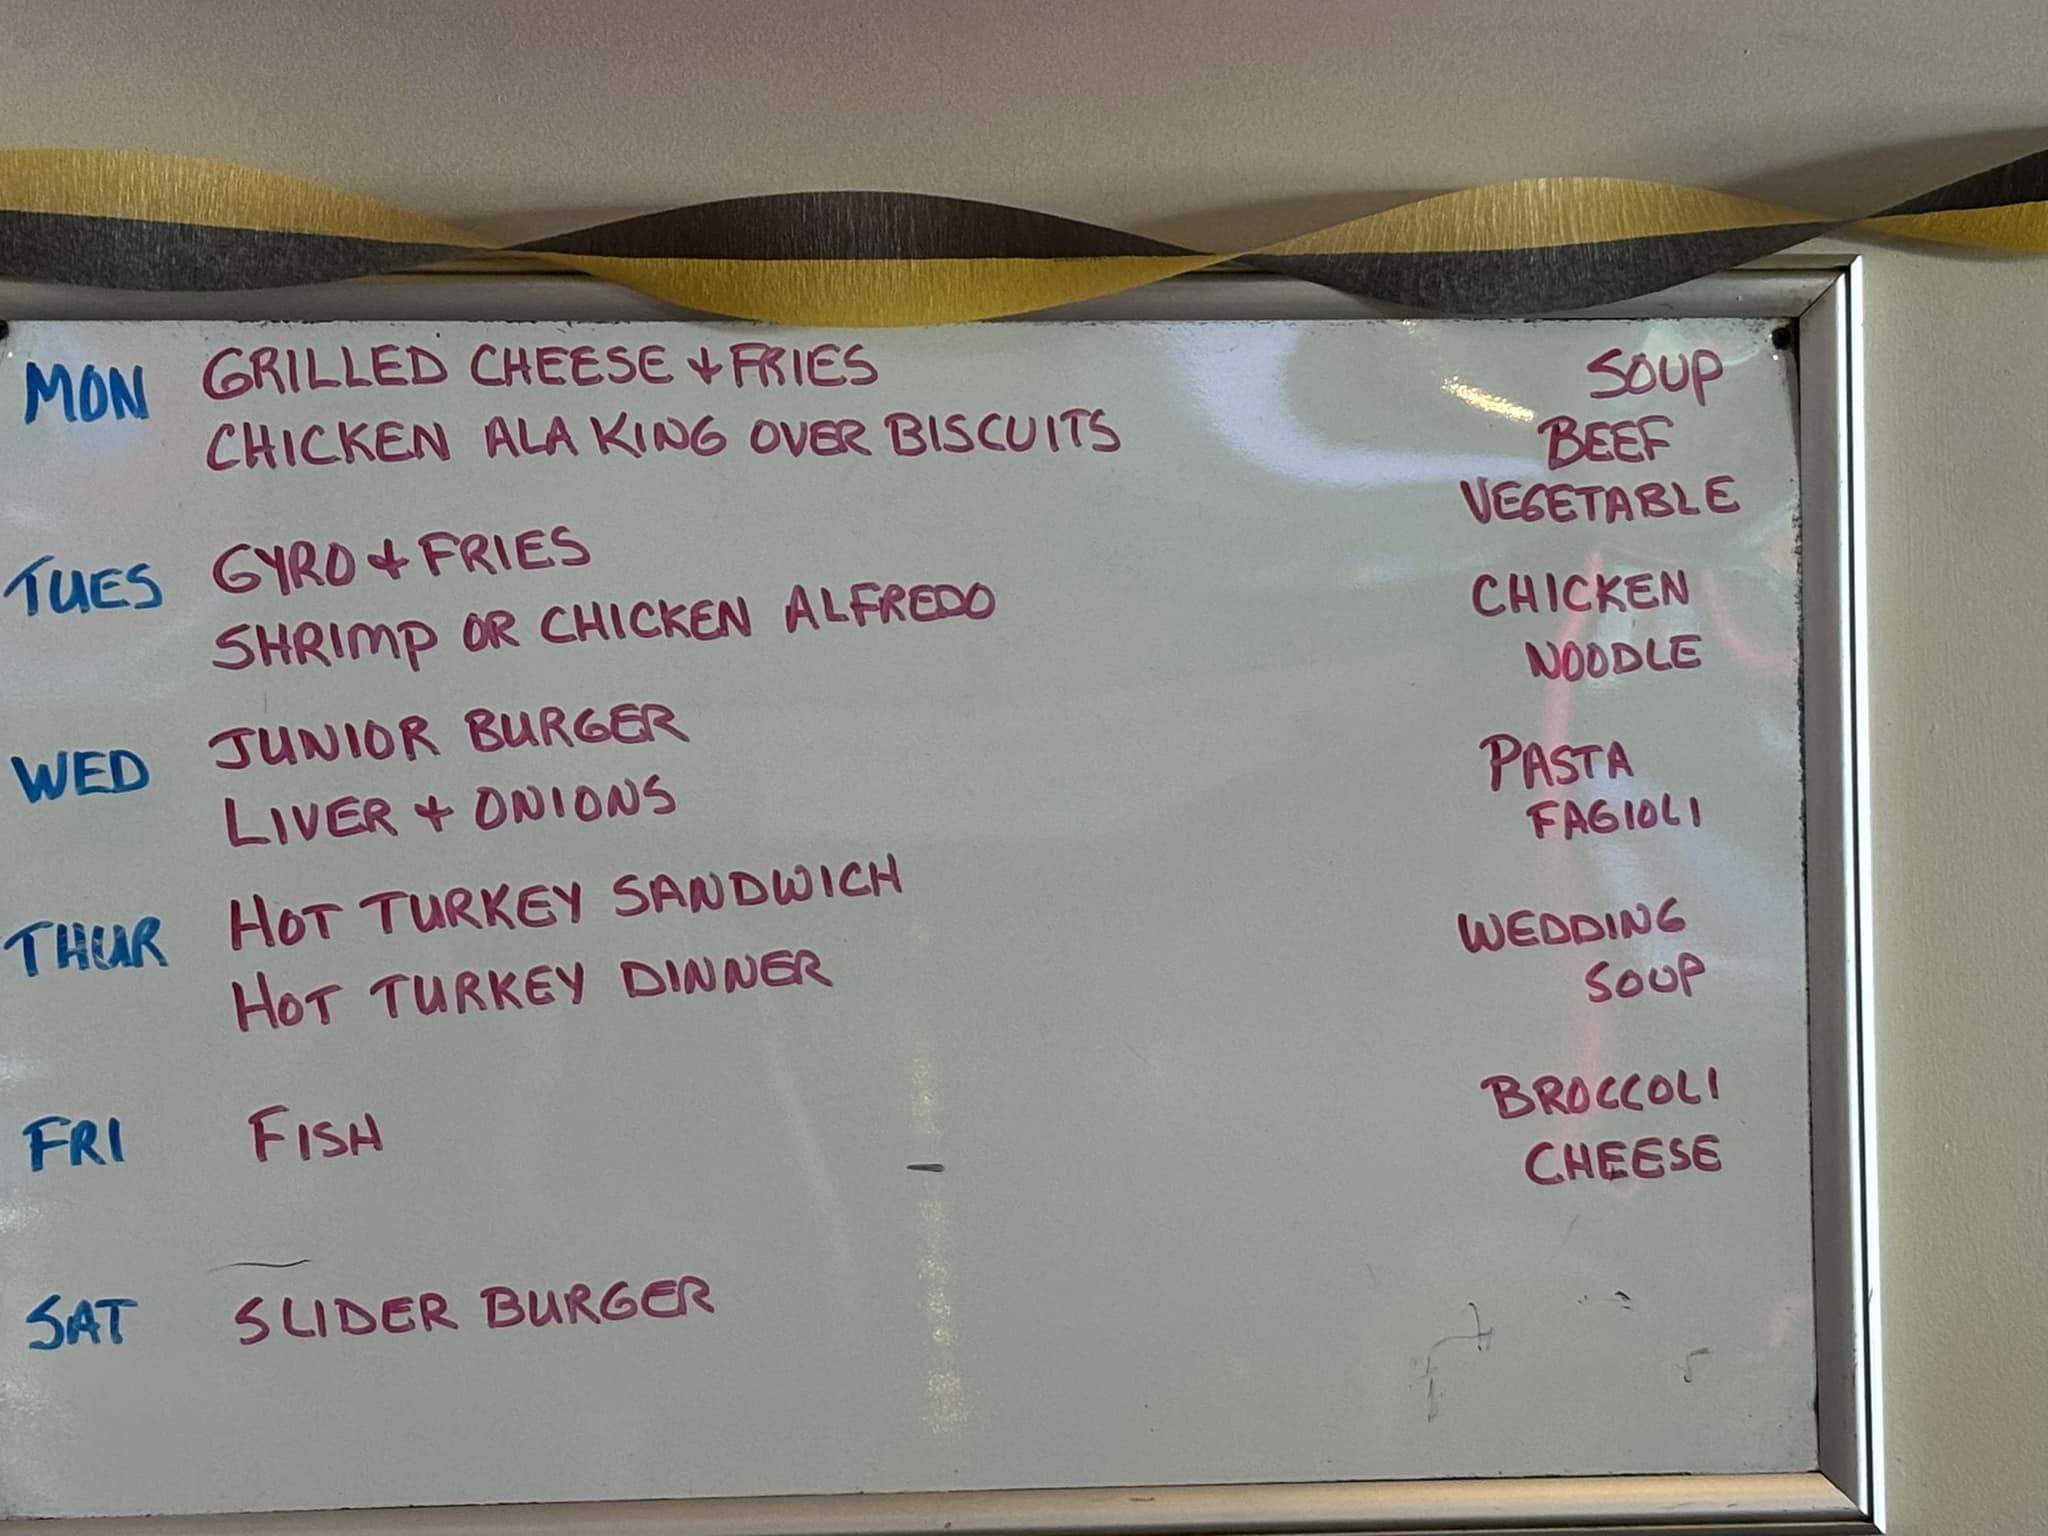 MON GRILLED CHEESE + FRIES SOUP
CHICKEN ALA KING OVER BISCUITS BEEF
VEGETABLE
TUES GYRO + FRIES CHICKEN
SHRIMP OR CHICKEN ALFREDO NOODLE
WED JUNIOR BURGER PASTA
LIVER + ONIONS FAGIOLI
THUR HOT TURKEY SANDWICH WEDDING
HOT TURKEY DINNER SOUP
FRI FISH BROCCOLI
CHEESE
SAT SLIDER BURGER